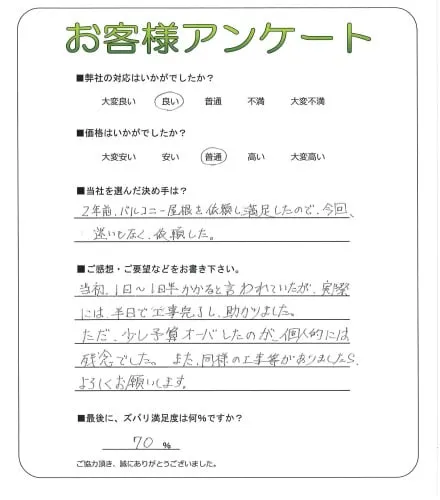 お客様アンケート
■弊社の対応はいかがでしたか？
大変良い 良い 普通 不満 大変不満
■価格はいかがでしたか？
大変安い 安い 普通 高い 大変高い
■当社を選んだ決め手は？
2年前、バルコニー屋根を依頼し満足したので、今回、
迷いもなく、依頼した。
■ご感想・ご要望などをお書き下さい。
当初、1日～1日半かかると言われていたが、実際
には、半日で工事完了し、助かりました。
ただ、少し予算オーバしたのが、個人的には
残念でした。また、同様の工事等がありましたら、
よろしくお願いします。
■最後に、ズバリ満足度は何％ですか？
70 ％
ご協力頂き、誠にありがとうございました。